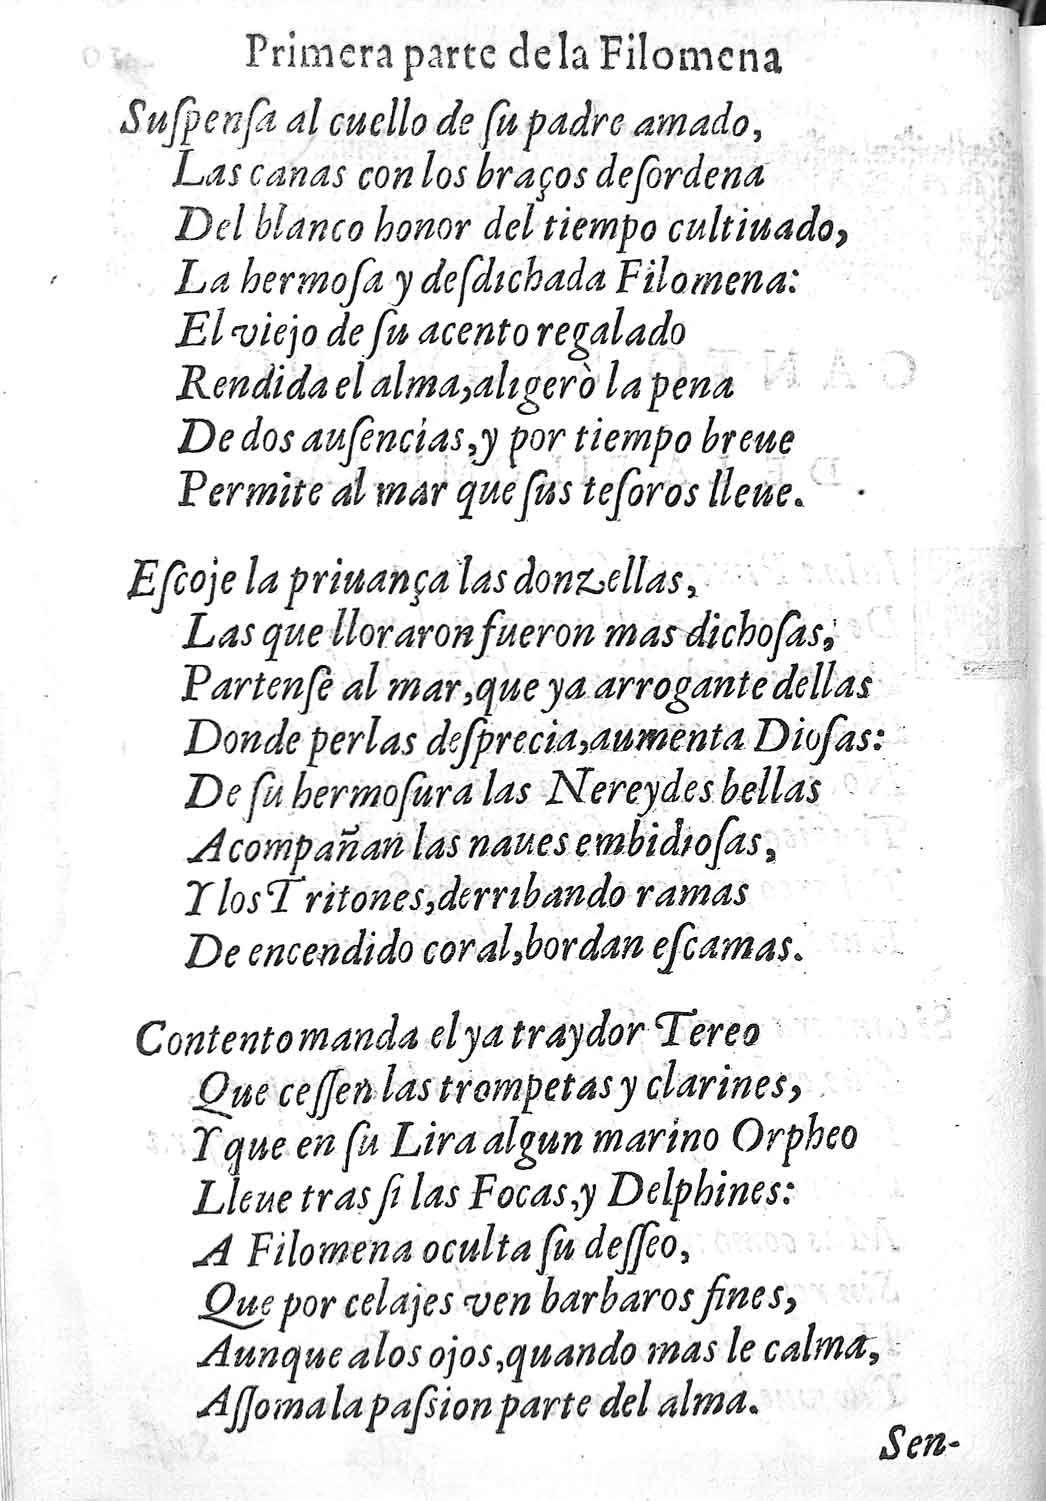 Primera parte de la Filomena
Suſpenſa al cuello de ſu padre amado,
Las canas con los braços deſordena
Del blanco honor del tiempo cultiuado,
La hermoſa y deſdichada Filomena:
El viejo de ſu acento regalado
Rendida el alma, aligerò la pena
De dos auſencias, y por tiempo breue
Permite al mar que ſus teſoros lleue.
Eſcoje la priuança las donzellas,
Las que lloraron fueron mas dichoſas,
Partenſe al mar, que ya arrogante dellas
Donde perlas deſprecia, aumenta Dioſas:
De ſu hermoſura las Nereydes bellas
Acompañan las naues embidioſas,
Y los Tritones, derribando ramas
De encendido coral, bordan eſcamas.
Contento manda el ya traydor Tereo
Que ceſſen las trompetas y clarines,
Y que en ſu Lira algun marino Orpheo
Lleue tras ſi las Focas, y Delphines:
A Filomena oculta ſu deſſeo,
Que por celajes ven barbaros fines,
Aunque a los ojos, quando mas le calma,
Aſſoma la paſsion parte del alma.
Sen-